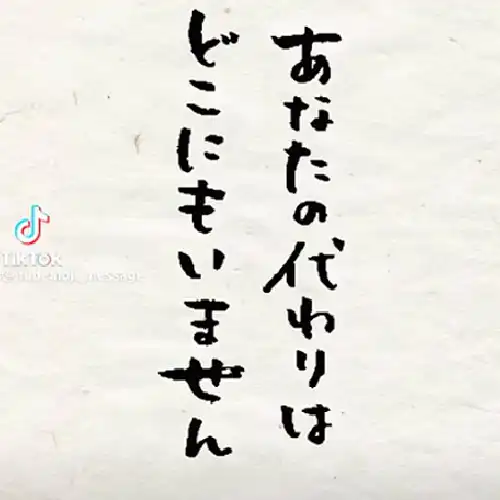 あなたの代わりは
どこにもいません
TikTok